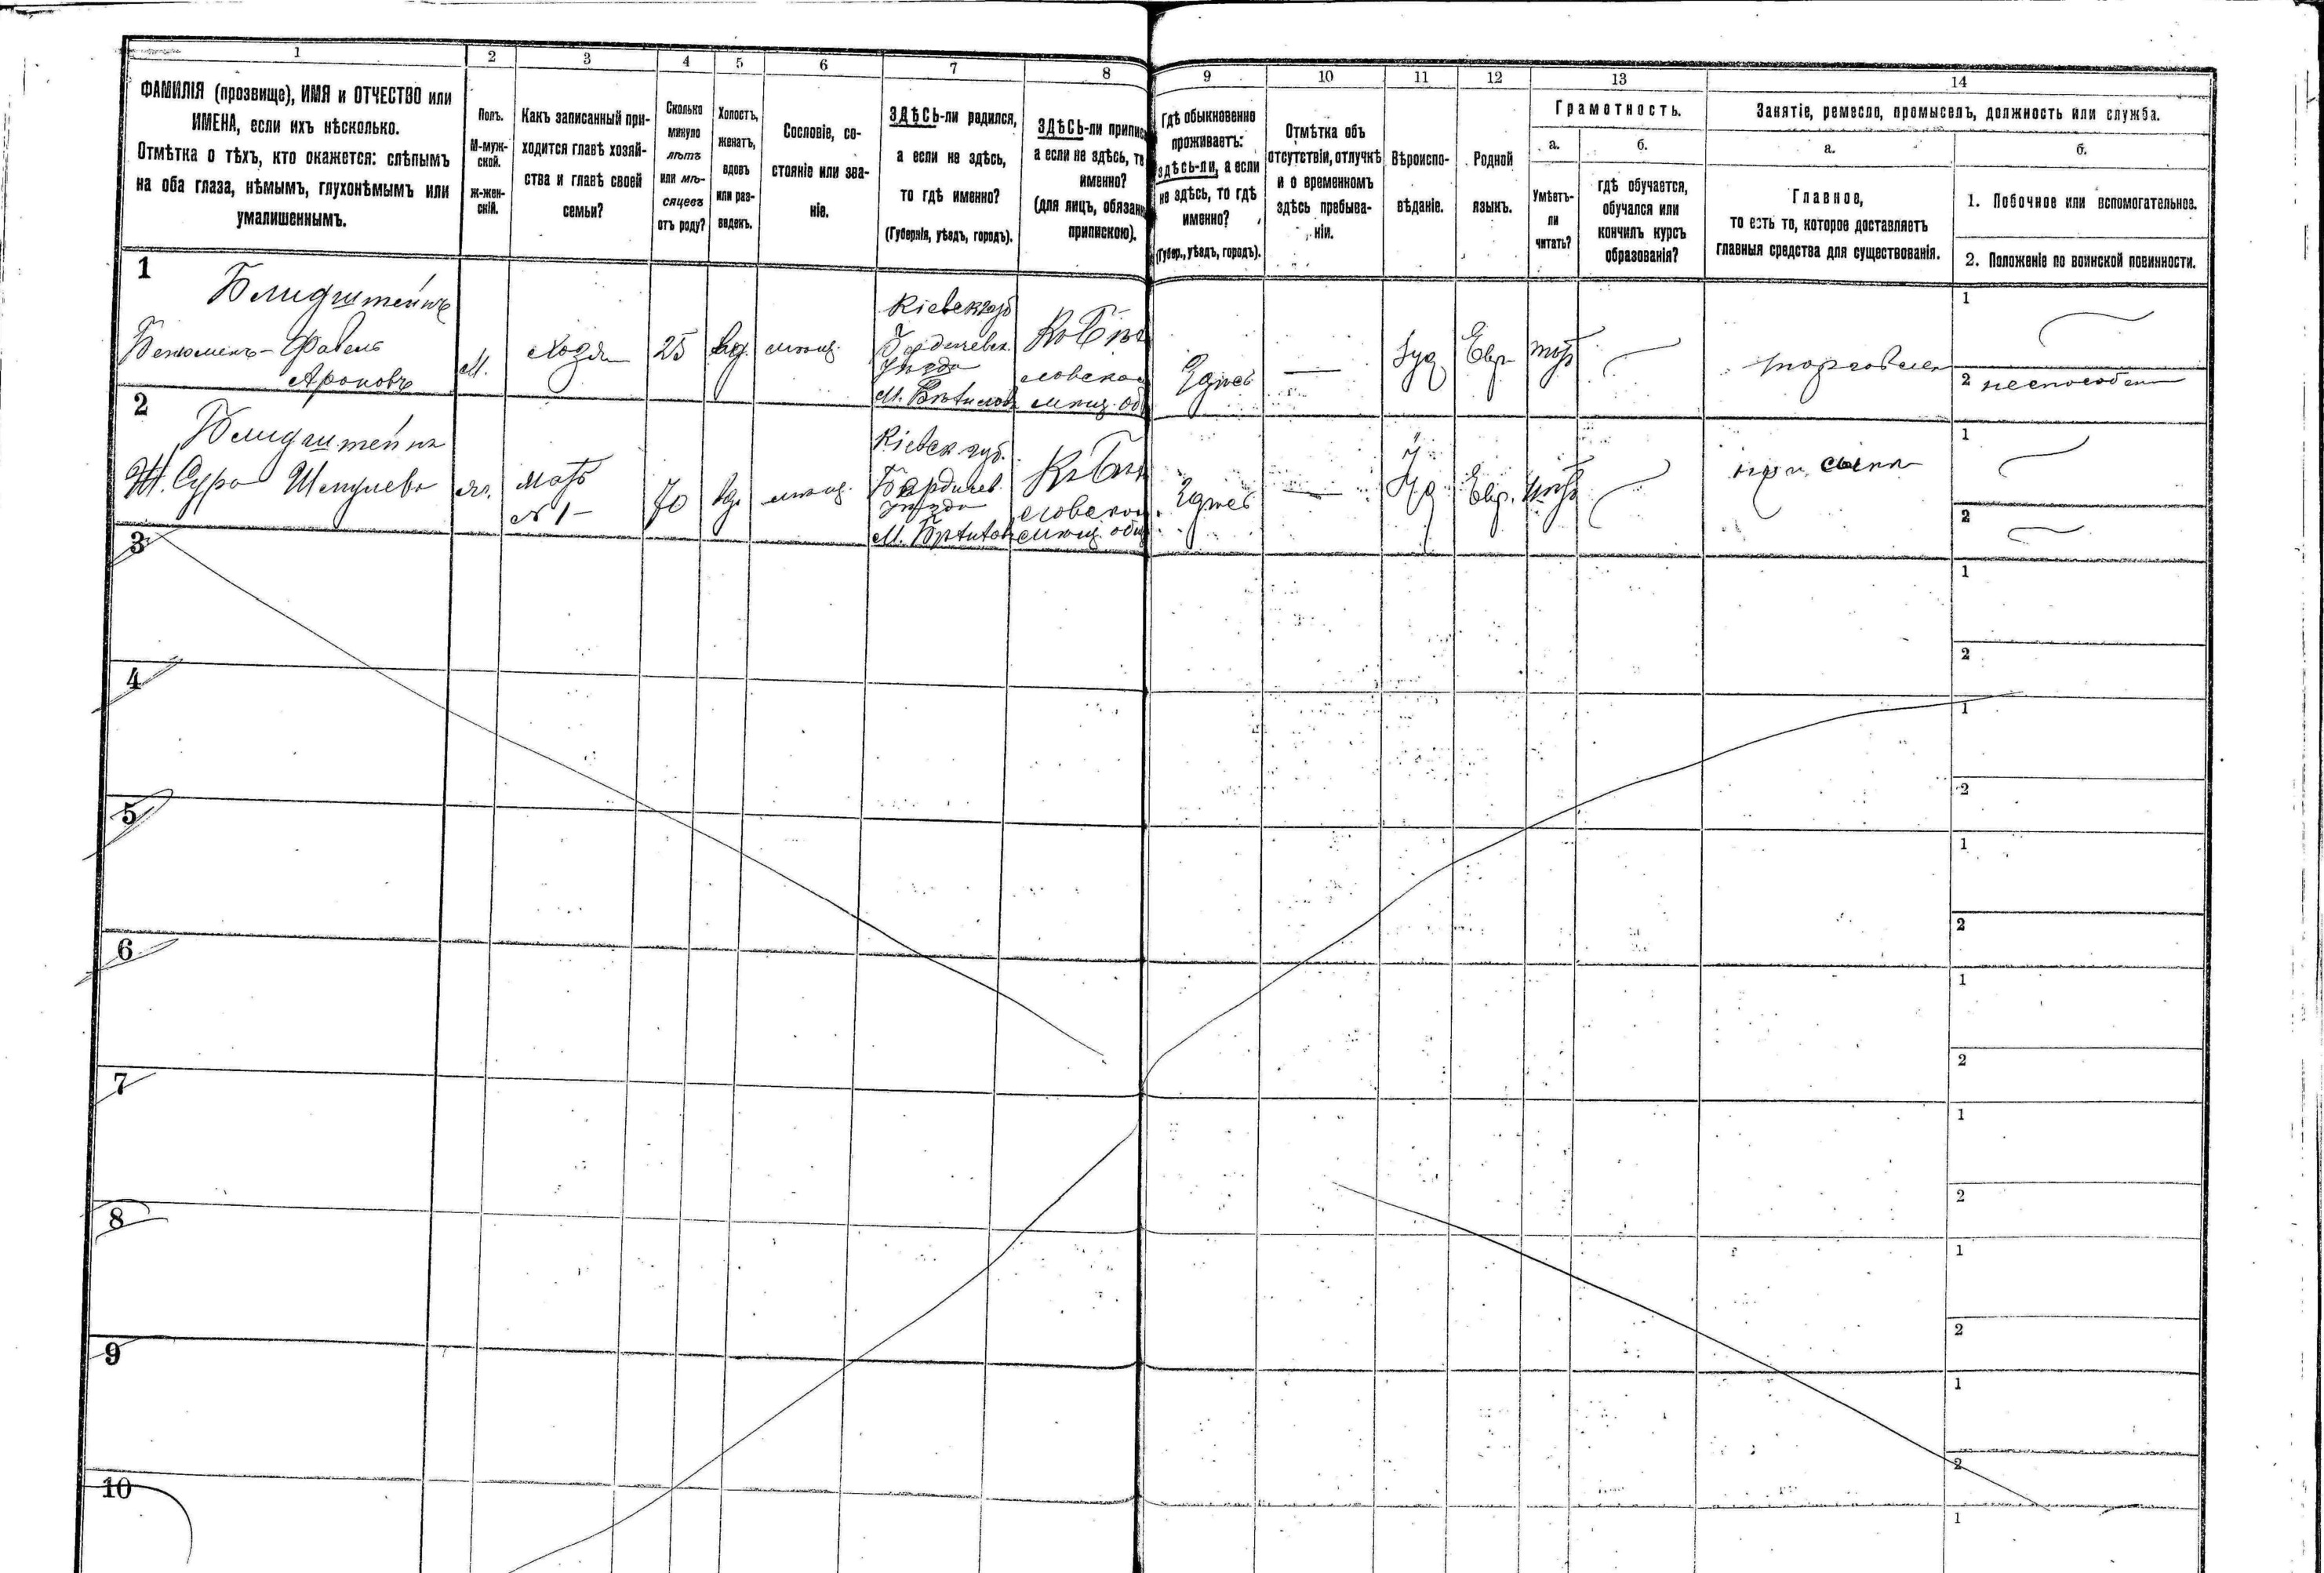 1
2
3
4
5
6
7
8
9
10
11
12
13
14
ФАМИЛІЯ (прозвище), ИМЯ и ОТЧЕСТВО или
ИМЕНА, если ихъ нѣсколько.
Отмѣтка о тѣхъ, кто окажется: слѣпымъ
на оба глаза, нѣмымъ, глухонѣмымъ или
умалишеннымъ.
Полъ.
М-муж-
ской.
Ж-жен-
скій.
Какъ записанный при-
ходится главѣ хозяй-
ства и главѣ своей
семьи?
Сколько
минуло
лѣтъ
или мѣ-
сяцевъ
отъ роду?
Холостъ,
женатъ,
вдовъ
или раз-
веденъ.
Сословіе, со-
стояніе или зва-
ніе.
ЗДѢСЬ-ли родился,
а если не здѣсь,
то гдѣ именно?
(Губернія, уѣздъ, городъ).
ЗДѢСЬ-ли припис
а если не здѣсь, то
именно?
(для лицъ, обязан
припискою).
Гдѣ обыкновенно
проживаетъ:
здѣсь-ли, а если
не здѣсь, то гдѣ
именно?
(Губер., уѣздъ, городъ).
Отмѣтка объ
отсутствіи, отлучкѣ
и о временномъ
здѣсь пребыва-
ніи.
Вѣроиспо-
вѣданіе.
Родной
языкъ.
Грамотность.
а.
Умѣетъ-
ли
читать?
б.
гдѣ обучается,
обучался или
кончилъ курсъ
образованія?
Занятіе, ремесло, промыселъ, должность или служба.
а.
Главное,
то есть то, которое доставляетъ
главныя средства для существованія.
б.
1. Побочное или вспомогательное.
2. Положеніе по воинской повинности.
1
Блидштейнъ
Ароновъ
М.
25
вд.
мѣщ.
Кіевск губ
Бердичевск.
уѣзда
словском
мѣщ. об
Здѣсь
—
Іуд
Евр
торговлей
1
2 неспособен
2
Блидштейнъ
Ж. Сура Шмулева
ж.
мать
№ 1 –
70
вд.
мѣщ.
Кіевск губ.
Бердичев.
уѣзда
словском
мѣщ. общ
Здѣсь
—
Іуд
Евр.
при сынѣ
1
2
3
1
2
4
1
2
5
1
2
6
1
2
7
1
2
8
1
2
9
1
2
10
1